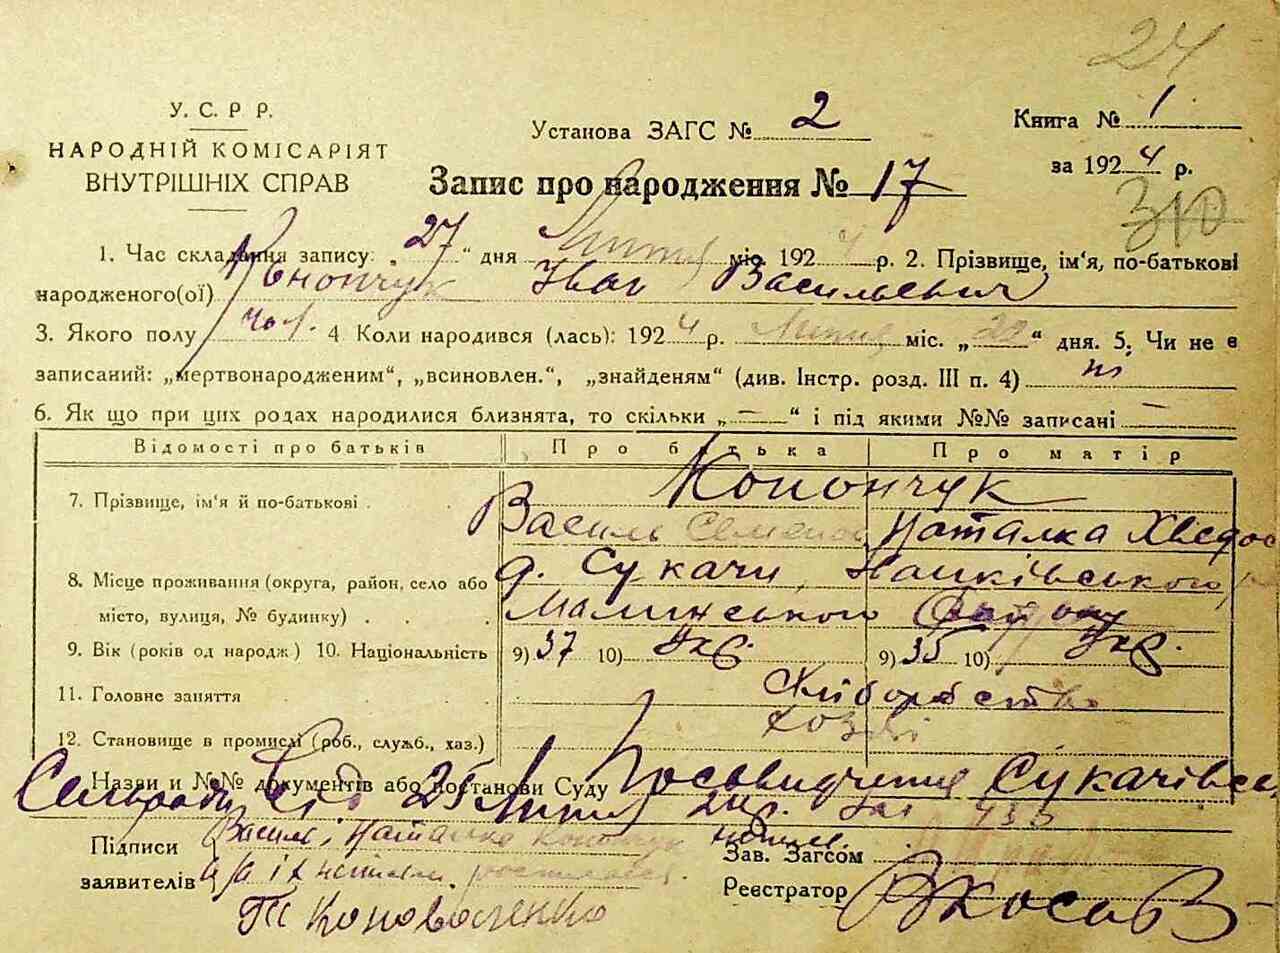 24
У. С. Р Р.
НАРОДНІЙ КОМІСАРІЯТ
ВНУТРІШНІХ СПРАВ
Установа ЗАГС № 2
Книга № 1
за 1924 р.
Запис про народження № 17
310
1. Час складання запису: 27 " дня Липня міс. 1924 р. 2. Прізвище, ім'я, по-батькові
народженого(ої) Конончук Іван Васильевич
3. Якого полу чол. 4 Коли народився (лась): 1924 р. Липня міс. „ 22 " дня. 5. Чи не є
записаний: „мертвонародженим", „всиновлен.", „знайденям" (див. Інстр. розд. III п. 4) ні
6. Як що при цих родах народилися близнята, то скільки „ — " і під якими №№ записані —
Відомості про батьків Про батька Про матір
7. Прізвище, ім'я й по-батькові . Конончук
Василь Семенов Наталка Хведос
8. Місце проживання (округа, район, село або д. Сукачи,
місто, вулиця, № будинку) . . . Малинського
9. Вік (років од народж) 10. Національність 9) 37 10) Укр. 9) 35 10) Укр.
11. Головне заняття Хліборобство
12. Становище в промислі (роб., служб., хаз.)
Назви и №№ документів або постанови Суду Посвидчення Сукачівсь
Сельради від 25 Липня 24р. за 433
Підписи Василь і Наталка Конончук
заявителів
Коноваленко
Зав. Загсом
Реєстратор